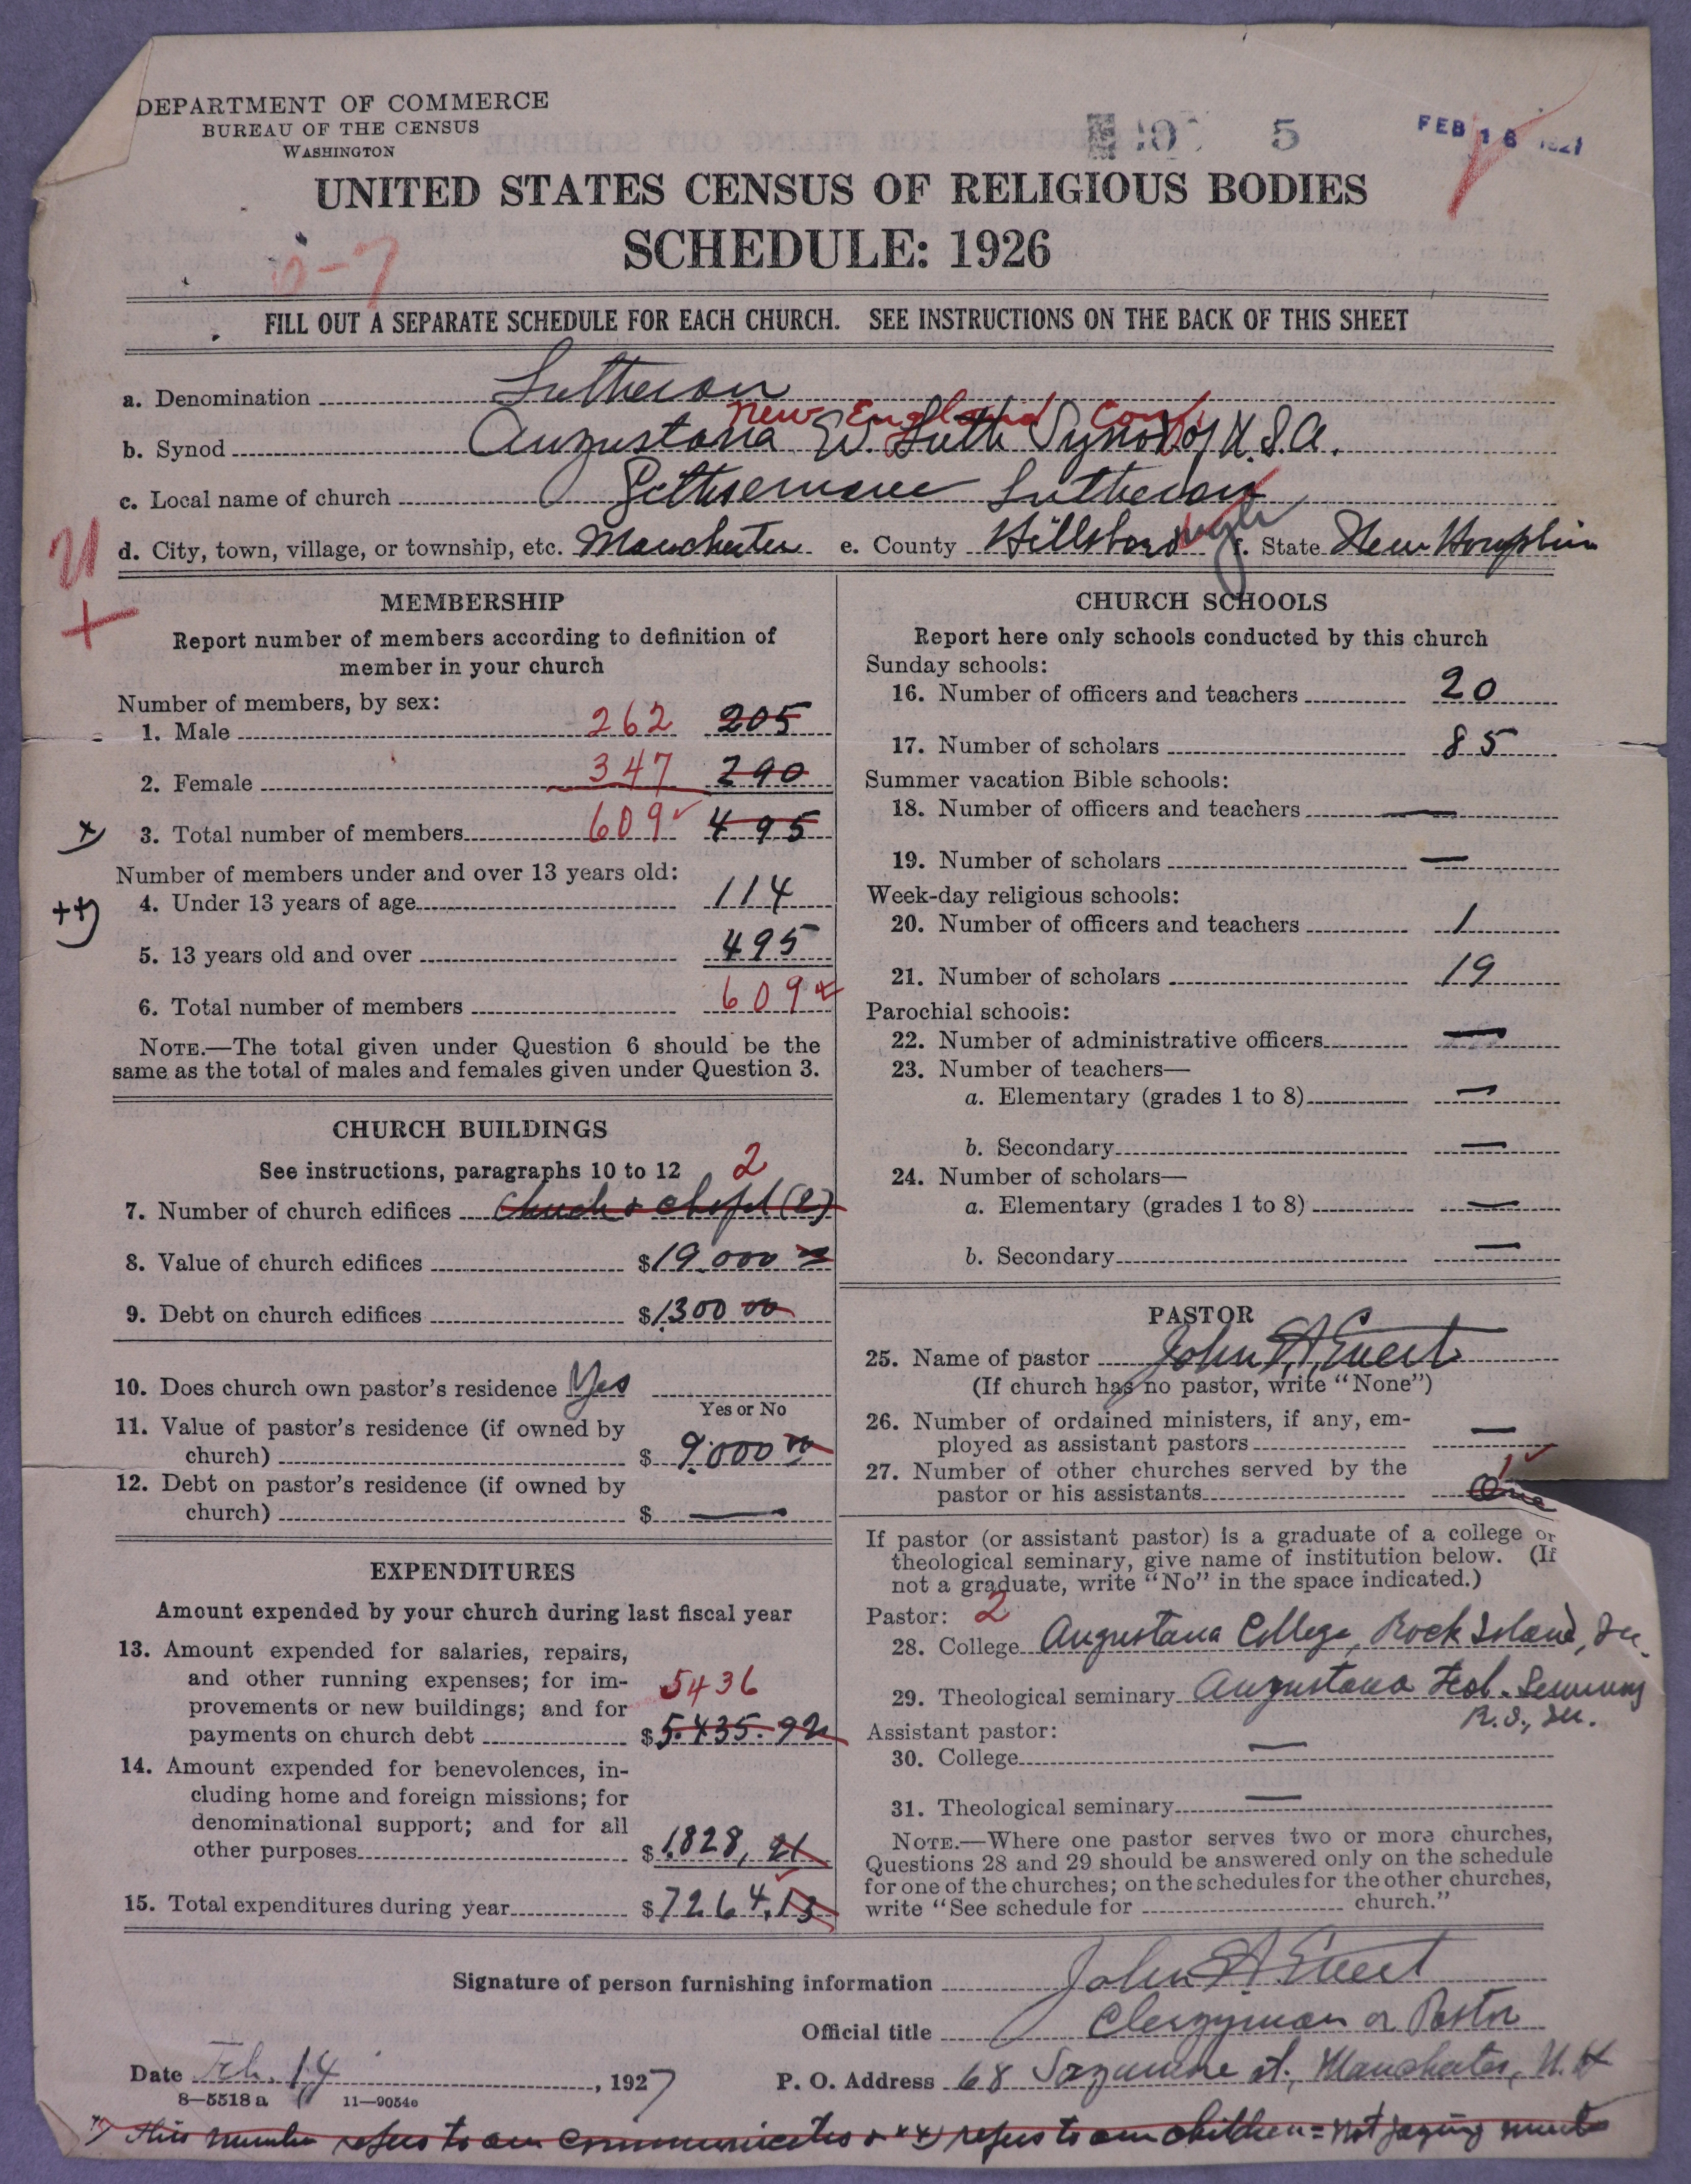 DEPARTMENT OF COMMERCE
BUREAU OF THE CENSUS
WASHINGTON
5
FEB 16 1927
UNITED STATES CENSUS OF RELIGIOUS BODIES
SCHEDULE: 1926
FILL OUT A SEPARATE SCHEDULE FOR EACH CHURCH. SEE INSTRUCTIONS ON THE BACK OF THIS SHEET
a. Denomination Lutheran
New England Conf.
b. Synod Augustana Ev. Luth Synod of U.S.A.
c. Local name of church Gethsemane Lutheran
d. City, town, village, or township, etc. Manchester e. County Hillsborough f. State New Hampshire
MEMBERSHIP
Report number of members according to definition of
member in your church
Number of members, by sex:
1. Male 262 205
2. Female 347 290
x) 3. Total number of members 609 495
Number of members under and over 13 years old:
++) 4. Under 13 years of age 114
5. 13 years old and over 495
6. Total number of members 609
NOTE.—The total given under Question 6 should be the
same as the total of males and females given under Question 3.
CHURCH BUILDINGS
See instructions, paragraphs 10 to 12 2
7. Number of church edifices Church & chapel (2)
8. Value of church edifices $19.000 00
9. Debt on church edifices $1300 00
10. Does church own pastor's residence Yes
Yes or No
11. Value of pastor's residence (if owned by
church) $ 9.000 00
12. Debt on pastor's residence (if owned by
church) $ —
EXPENDITURES
Amount expended by your church during last fiscal year
13. Amount expended for salaries, repairs,
and other running expenses; for im-
provements or new buildings; and for 5436
payments on church debt $5.435.92
14. Amount expended for benevolences, in-
cluding home and foreign missions; for
denominational support; and for all
other purposes $1.828, 21
15. Total expenditures during year $7264.13
CHURCH SCHOOLS
Report here only schools conducted by this church
Sunday schools:
16. Number of officers and teachers 20
17. Number of scholars 85
Summer vacation Bible schools:
18. Number of officers and teachers —
19. Number of scholars —
Week-day religious schools:
20. Number of officers and teachers 1
21. Number of scholars 19
Parochial schools:
22. Number of administrative officers —
23. Number of teachers—
a. Elementary (grades 1 to 8) —
b. Secondary —
24. Number of scholars—
a. Elementary (grades 1 to 8) —
b. Secondary —
PASTOR
25. Name of pastor John A. Evert
(If church has no pastor, write "None")
26. Number of ordained ministers, if any, em-
ployed as assistant pastors —
27. Number of other churches served by the 1
pastor or his assistants One
If pastor (or assistant pastor) is a graduate of a college or
theological seminary, give name of institution below. (If
not a graduate, write "No" in the space indicated.)
Pastor: 2
28. College Augustana College, Rock Island, Ill.
29. Theological seminary Augustana Teol. Seminary
R.I., Ill.
Assistant pastor:
30. College —
31. Theological seminary —
NOTE.—Where one pastor serves two or more churches,
Questions 28 and 29 should be answered only on the schedule
for one of the churches; on the schedules for the other churches,
write "See schedule for church."
Signature of person furnishing information John A. Evert
Official title Clergyman or Pastor
Date Feb. 14, 1927 P. O. Address 68 Sagamore st., Manchester, N.H
8—5518 a 11—9054c
x) This number refers to our communicates & xx) refers to our children = not paying